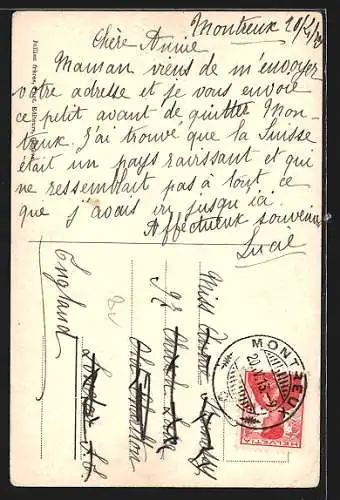 Montreux
Chère Annie
Maman viens de m'envoyer
votre adresse et je vous envoie
ce petit avant de quitter Mon-
treux. J'ai trouvé que la Suisse
était un pays ravissant et qui
ne ressemblait pas à tout ce
que j'avais vu jusqu'ici.
Affectueux souvenir
Lucie
Miss
England
MONTREUX
HELVETIA